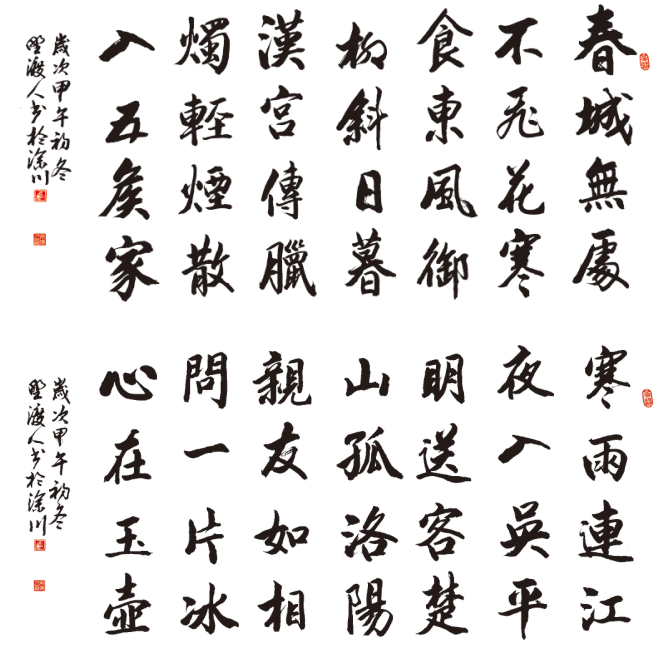 春城無處
不飛花寒
食東風御
柳斜日暮
漢宮傳臘
燭輕煙散
入五矦家
歲次甲午初冬
野渡人书於滁川
寒雨連江
夜入吳平
明送客楚
山孤洛陽
親友如相
問一片冰
心在玉壺
歲次甲午初冬
野渡人书於滁川